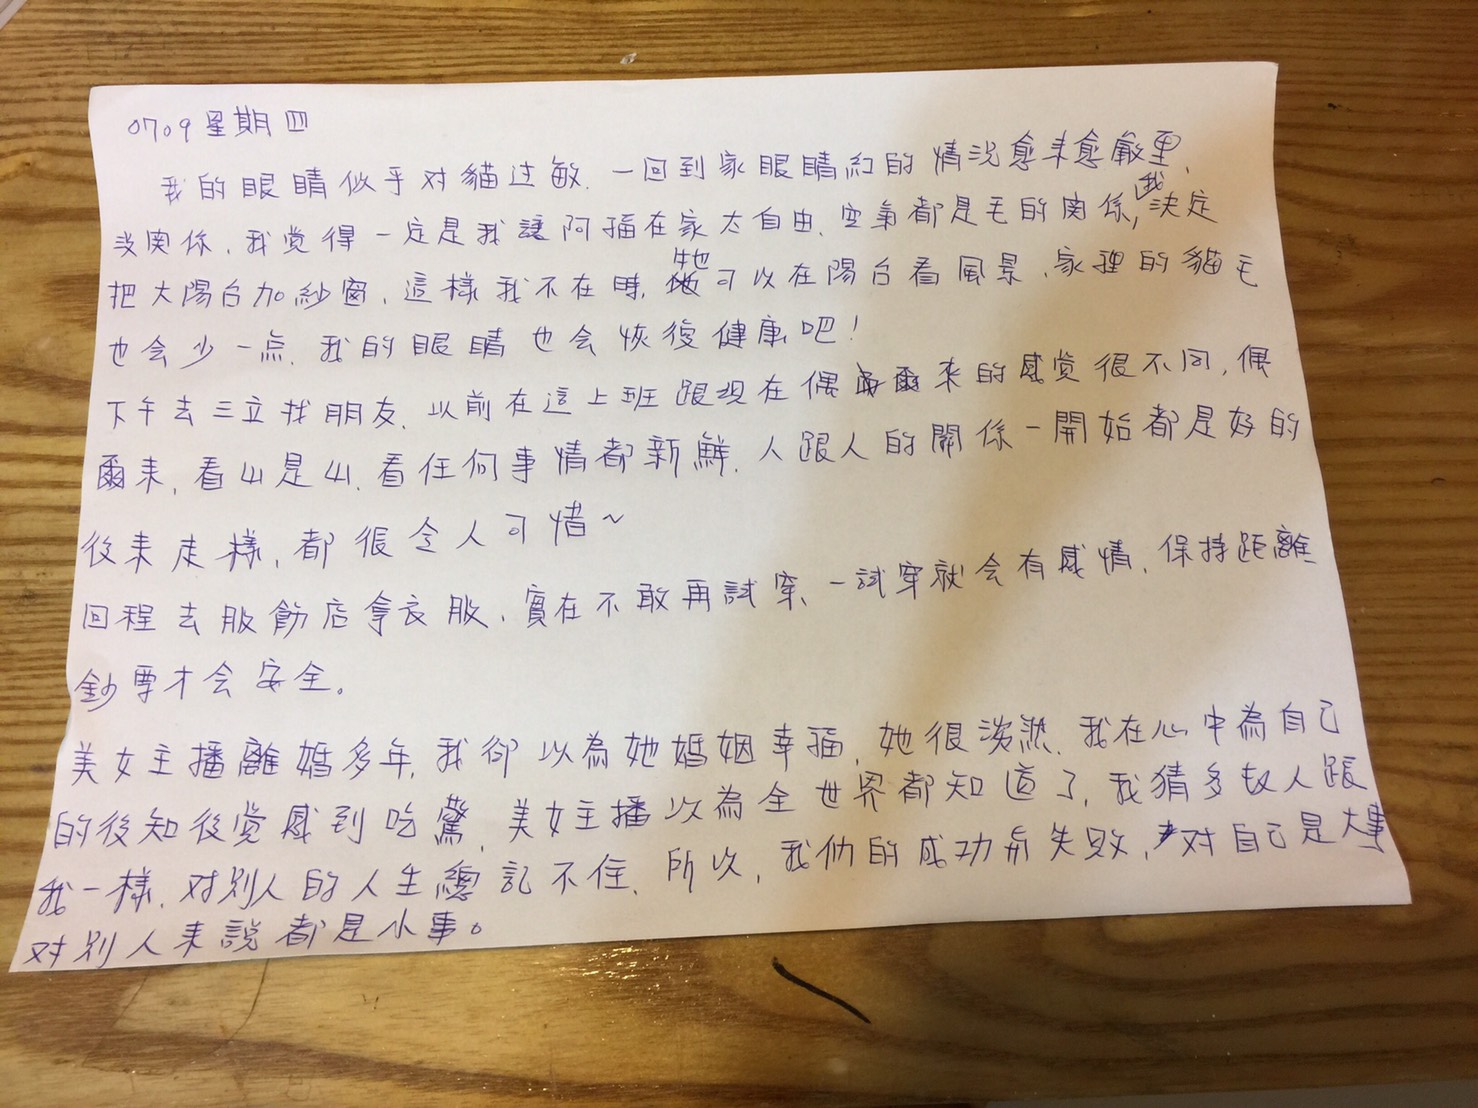 0709星期四
我的眼睛似乎对貓过敏．一回到家眼睛紅的情況愈来愈嚴重，
没関係，我覚得一定是我讓阿福在家太自由，空氣都是毛的関係，我決定
把大陽台加紗窗，這樣我不在時，牠可以在陽台看風景，家裡的貓毛
也会少一点，我的眼睛也会恢復健康吧！
下午去三立找朋友，以前在這上班跟現在偶爾來的感覚很不同，偶
爾来，看山是山，看任何事情都新鮮，人跟人的關係一開始都是好的
後来走樣，都很令人可惜～
回程去服飾店拿衣服，實在不敢再試穿，一試穿就会有感情，保持距離
鈔票才会安全。
美女主播離婚多年，我卻以為她婚姻幸福，她很淡然，我在心中為自己
的後知後覚感到吃驚，美女主播以為全世界都知道了，我猜多数人跟
我一樣，对別人的人生總記不住，所以，我們的成功与失敗，对自己是大事
对別人来說都是小事。